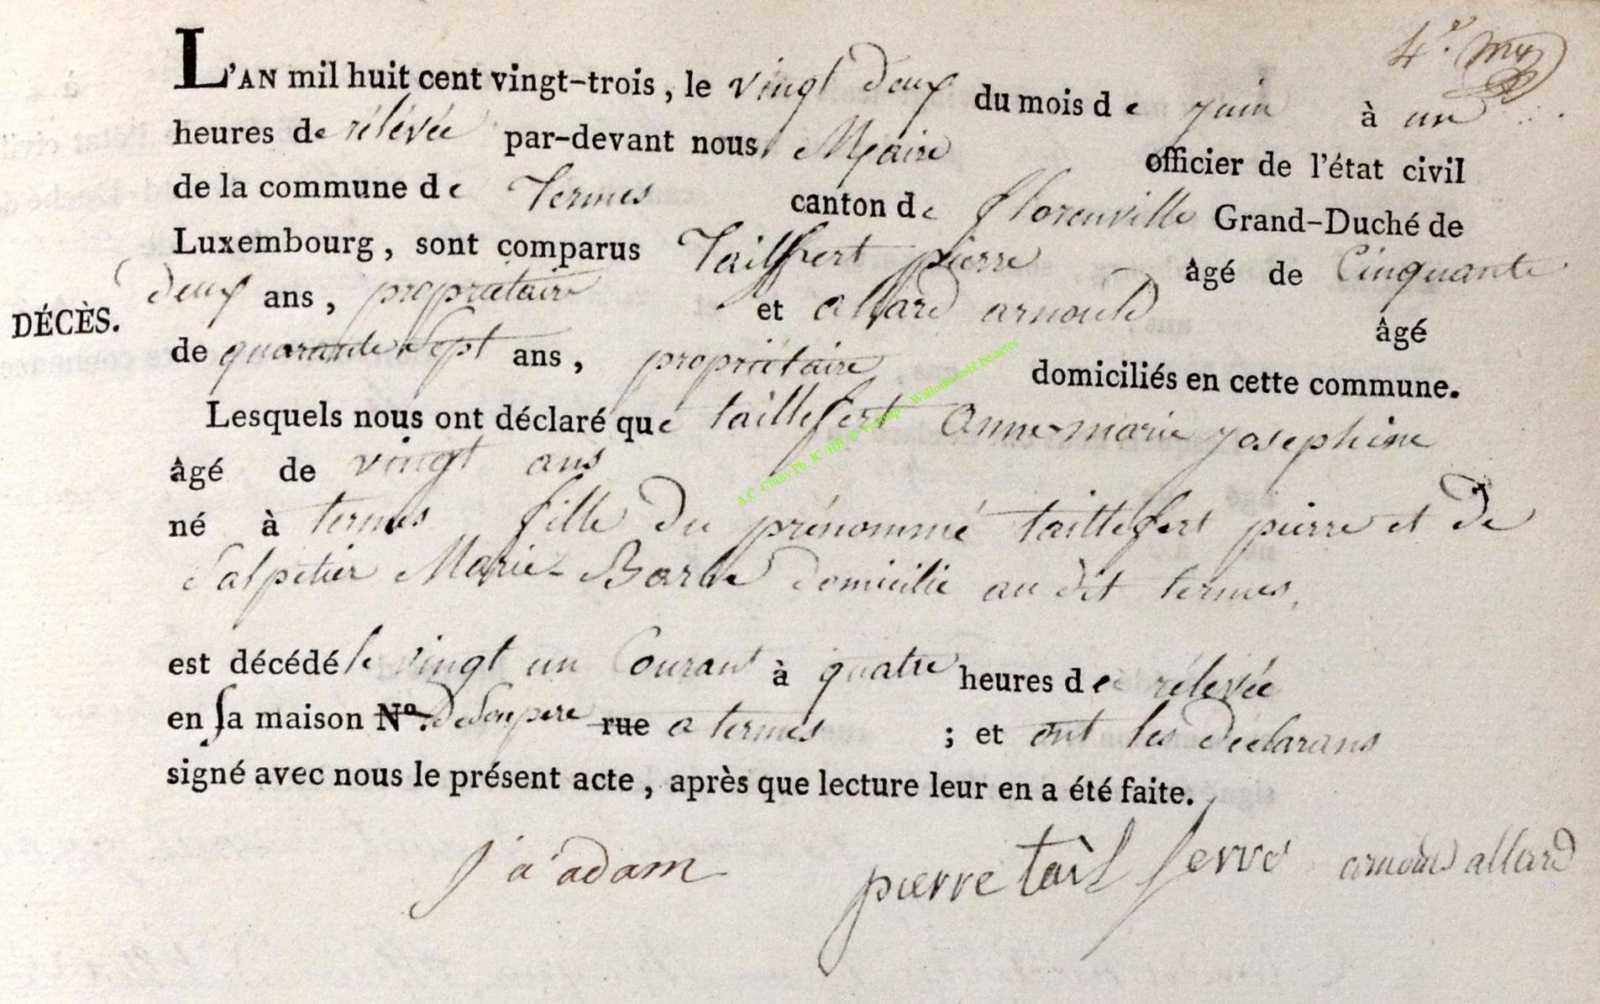 4e.
L'AN mil huit cent vingt-trois, le vingt deux du mois de juin à un
heures de rélévée par-devant nous Maire officier de l'état civil
de la commune de Termes canton de florenville Grand-Duché de
Luxembourg, sont comparus Tailfert pierre âgé de Cinquante
deux ans, propriétaire et allard arnould âgé
DÉCÈS.
de quarante sept ans, propriétaire domiciliés en cette commune.
Lesquels nous ont déclaré que taillefert Anne-marie josephine
âgé de vingt ans
né à termes fille du prénommé taillefert pierre et de
Salpetier Marie-Barbe domicilié au dit termes,
est décédé le vingt un Courant à quatre heures de rélevée
en sa maison N°. de son pere rue a termes ; et ont les déclarans
signé avec nous le présent acte, après que lecture leur en a été faite.
j a adam pierre tailferve arnould allard